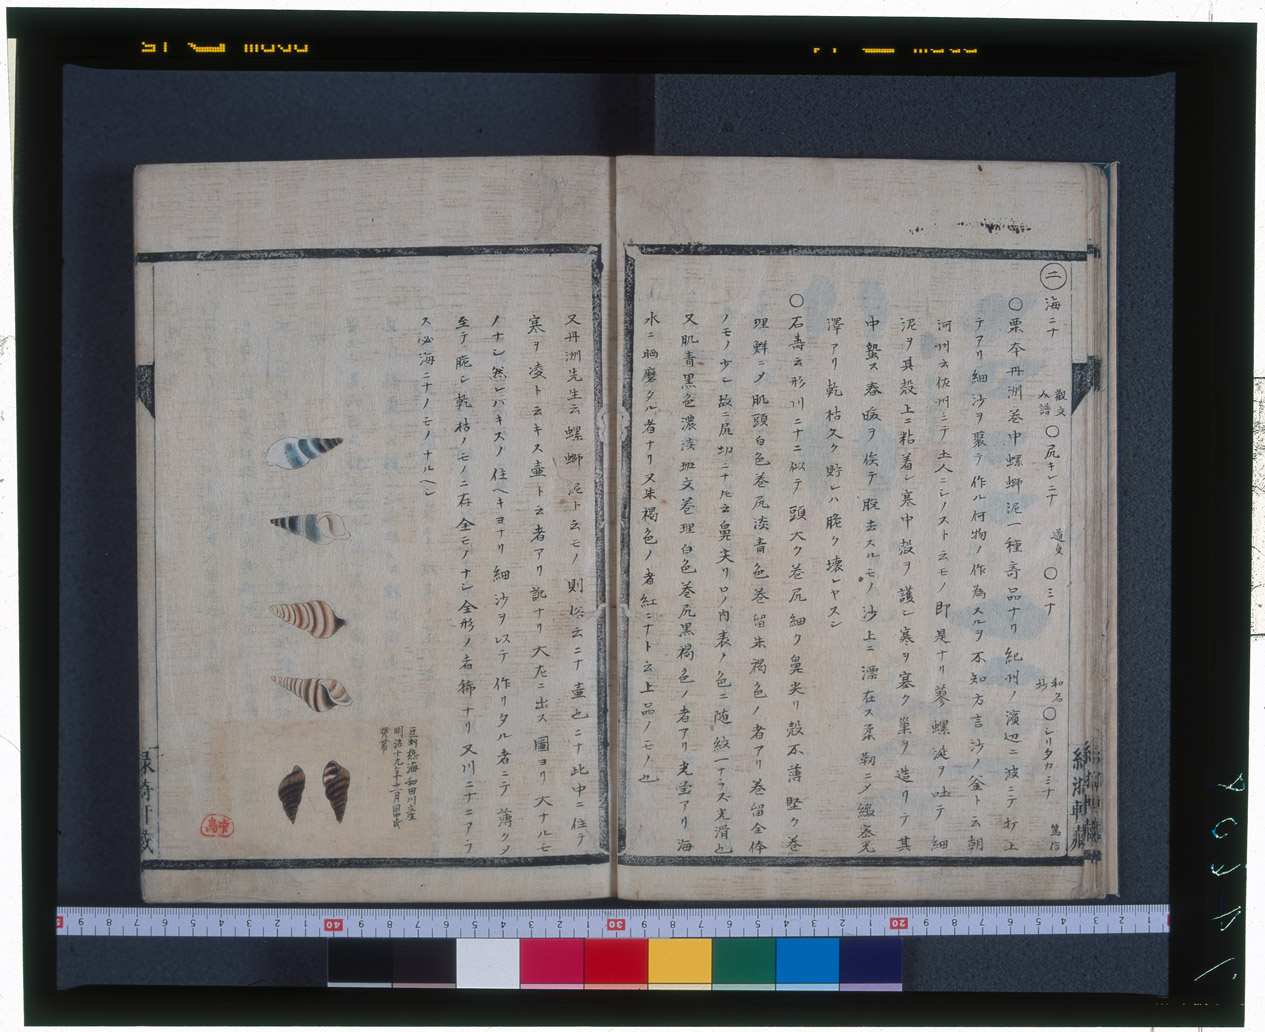 ㊁ 海ニナ 觀文介譜 〇尻キレニナ 〇ミナ 和名抄 〇シリタカミナ 篤信
〇栗本丹洲巻中螺螄泥一種奇品ナリ紀州ノ濱辺ニ波ニテ打上
テアリ細沙ヲ聚テ作ル何物ノ作為スルヲ不知方言沙ノ釜ト云朝
河州云佐州ニテ土人ニシノスト云モノ即是ナリ蓼螺涎ヲ吐テ細
泥ヲ其殻上ニ粘着シ寒中殻ヲ護シ寒ヲ塞ク巣ヲ造リテ其
中蟄ス春暖ヲ俟テ脱去スルモノ沙上ニ漂在ス柔靭ニメ綴密光
澤アリ乾枯久ク貯レハ脆ク壊レヤスシ
〇石壽云形川ニナニ似テ頭大ク巻尻細ク鼻尖リ殻不薄堅ク巻
理鮮ニメ肌頭白色巻尻淡青色巻留朱褐色ノ者アリ巻留全体
ノモノ少シ故ニ尻切ニナ云鼻尖リ口ノ内表ノ色ニ随紋一ナラズ光滑也
又肌青黒色濃淡班文巻理白色巻尻黒褐色ノ者アリ光瑩アリ海
水ニ晒磨タル者ナリ又朱褐色ノ者紅ニナト云上品ノモノ也
又丹洲先生云螺螄泥ト云モノ則俗云ニナ壷也ニナ此中ニ住テ
寒ヲ凌ト云キス壷ト云者アリ訛ナリ大左ニ出ス圖ヨリ大ナルモ
ノナシ然レハキスノ住ヘキヨナリ細沙ヲ以テ作リタル者ニテ薄クメ
至テ脆シ乾枯ノモノニ存全モノナシ全形ノ者稀ナリ又川ニナニアラ
ス必海ニナノモノナルヘシ
豆州熱海和田川産
明治十九年十一月田中氏
携帯